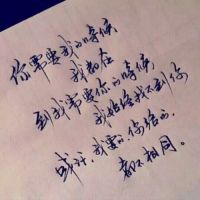 你需要我的時候
我都在
到我需要你的時候
我始终找不到你
或许，我要的，你给的，
都不相同。